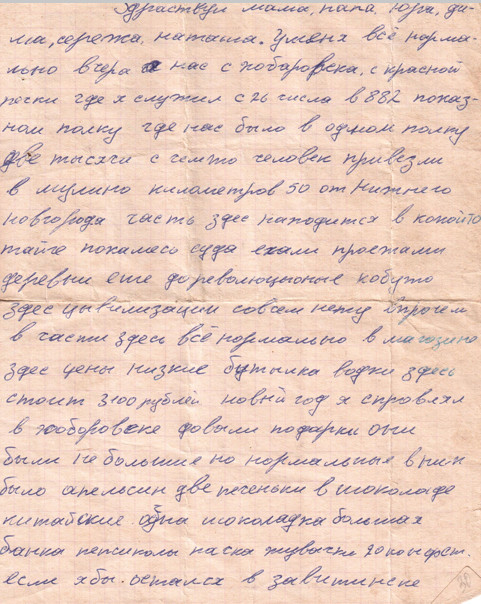 Здраствуй мама, папа, Юра, ди-
ма, сережа, наташа. У меня всё норма-
льно вчера нас с хобаровска, с красной
речки где я служил с 26 числа в 882 показ-
ном полку где нас было в одном полку
две тысячи с чемто человек привезли
в мулино километров 50 от Нижнего
новгорода часть здес находится в какойто
тайге пока месь суда ехали проежали
деревни еше дореволюцыоные кобуто
здес цывилизации совсем нету Впрочем
в части здесь всё нормально в магозине
здес цены низкие бутылка водки здесь
стоит 3100 рублей новый год я справлял
в хоборовске довыли подарки они
были не большие но нормальные в них
было апельсин две печеньки в шоколаде
китайские одна шоколадка большая
банка пепсиколы пачка жувачки 20 конфет.
если я бы. остался в завитинске
20